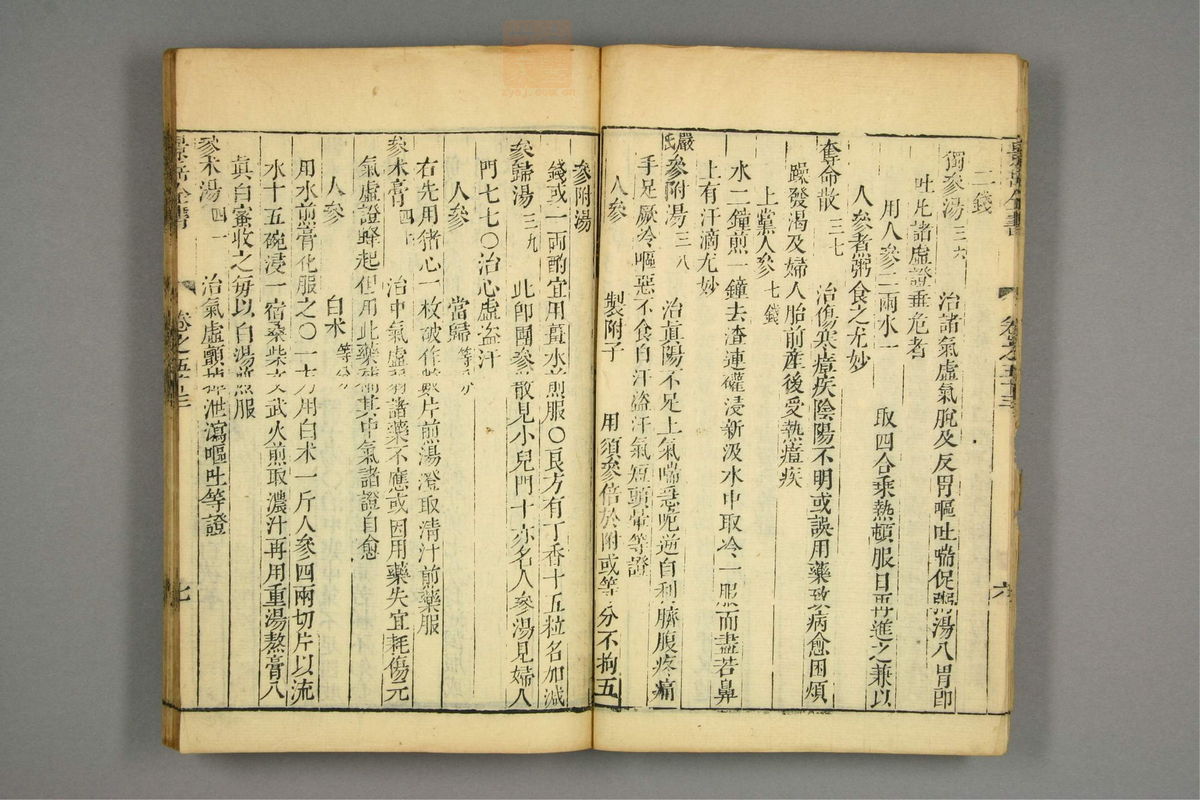 景岳全書
卷之五十三
六
二錢
獨參湯 三六 治諸氣虛氣脫及反胃嘔吐喘促粥湯入胃即
吐凡諸虛證垂危者
用人參二兩水一 取四合乘熱頓服日再進之兼以
人參煮粥食之尤妙
奪命散 三七 治傷寒瘴疾陰陽不明或誤用藥致病愈困煩
躁發渴及婦人胎前產後受熱瘴疾
上黨人參 七錢
水二鐘煎一鐘去渣連礶浸新汲水中取冷一服而盡若鼻
上有汗滴尤妙
嚴氏參附湯 三八 治眞陽不足上氣喘急呃逆自利臍腹疼痛
手足厥冷嘔惡不食自汗盜汗氣短頭暈等證
人參 製附子 用須參倍於附或等分不拘五
參附湯
錢或一兩酌宜用薑水煎服〇良方有丁香十五粒名加減
參歸湯 三九 此即團參散見小兒門十亦名人參湯見婦人
門七七〇治心虛盜汗
人參 當歸 等分
右先用猪心一枚破作數片煎湯澄取清汁煎藥服
參术膏 四十 治中氣虛弱諸藥不應或因用藥失宜耗傷元
氣虛證蜂起但用此藥補其中氣諸證自愈
人參 白术 等分
用水煎膏化服之〇一方用白术一斤人參四兩切片以流
水十五碗浸一宿桑柴文武火煎取濃汁再用重湯熬膏入
眞白蜜收之每以白湯㸃服
參术湯 四一 治氣虛顫掉泄瀉嘔吐等證
景岳全書
卷之五十三
七